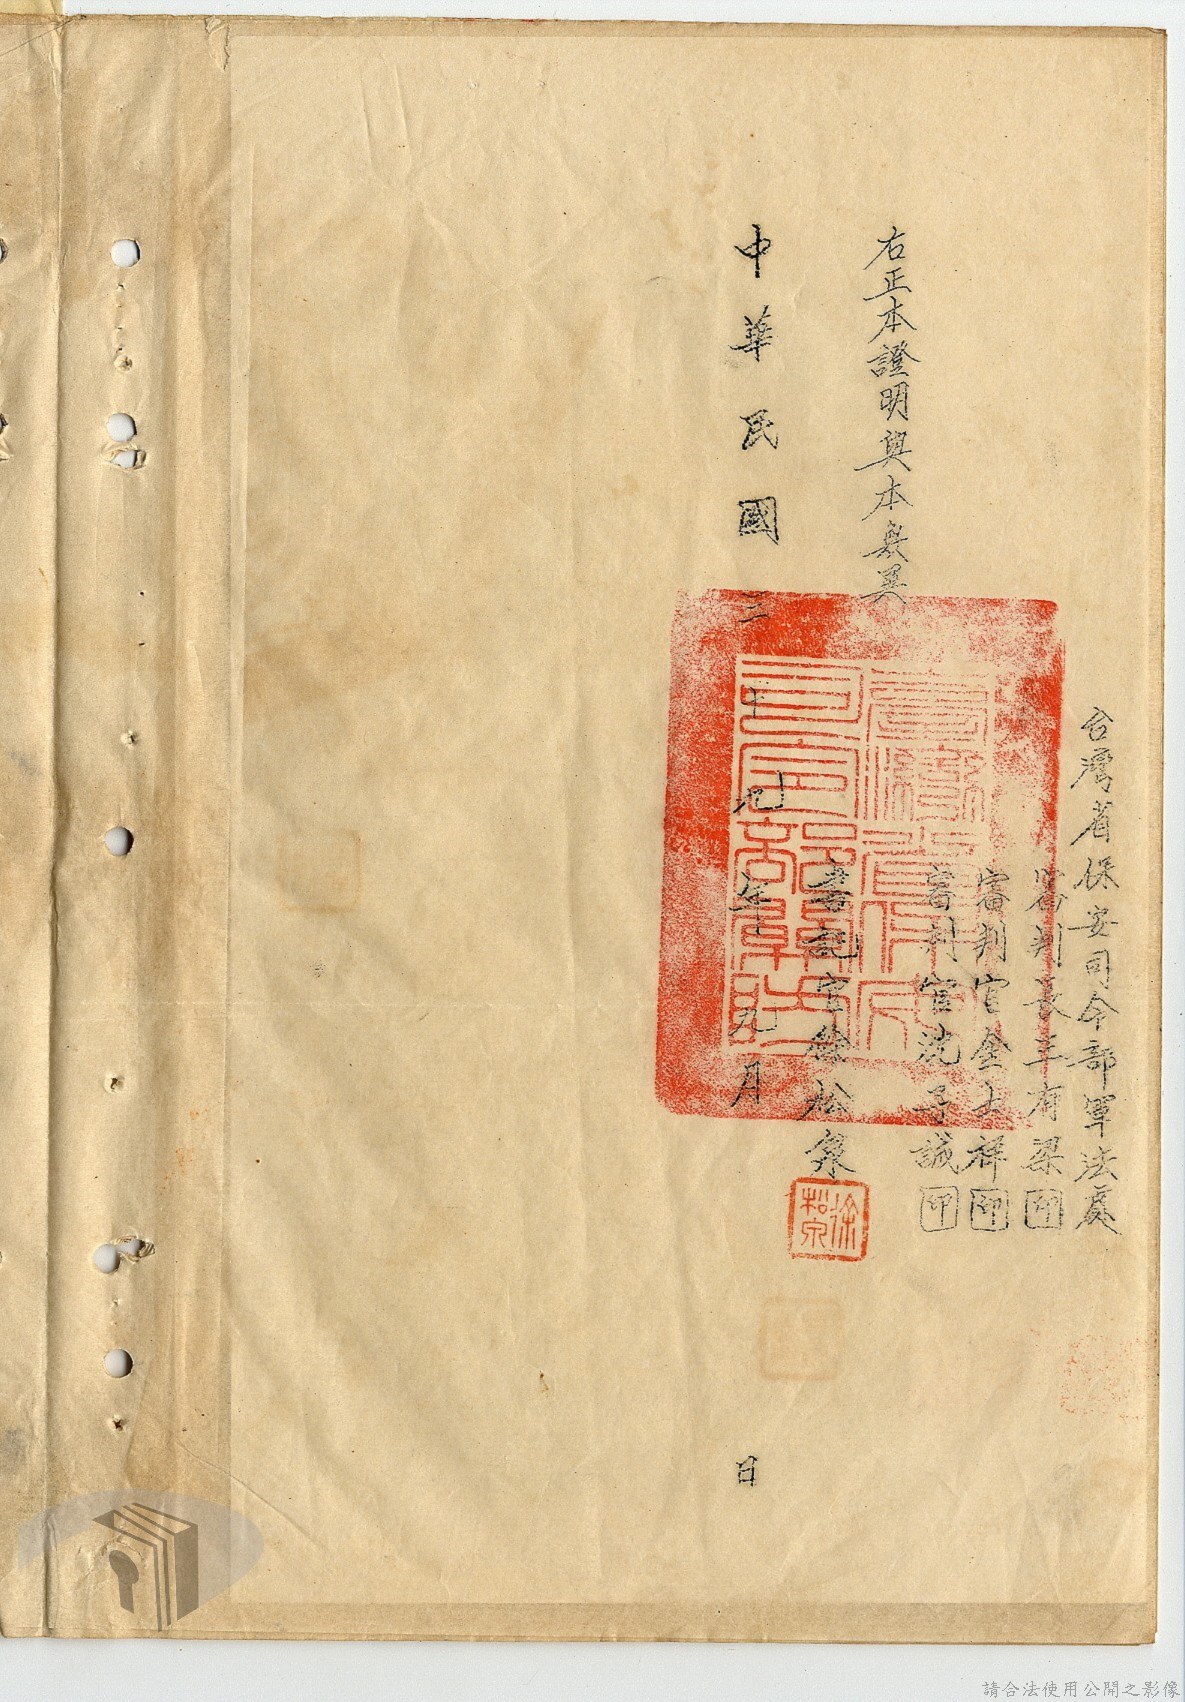 台灣省保安司令部軍法處
審判長王有梁印
審判官金士祥印
審判官沈子誠印
右正本證明與本無異
書記官徐松泉
徐松泉
中華民國三十九年九月 日
請合法使用公開之影像